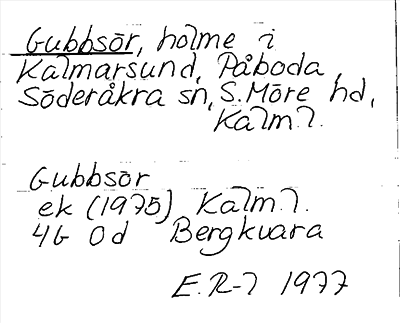 Gubbsör, holme i
Kalmarsund, Påboda,
Söderåkra sn, S. Möre hd,
Kalm. l.
Gubbsör
ek (1975) Kalm. l.
4G 0d Bergkvara
E. R-l 1977